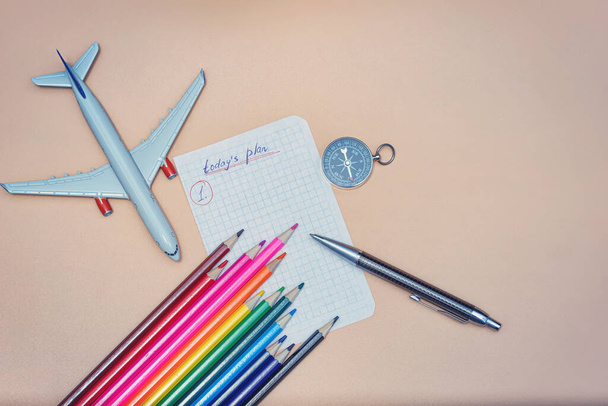 today's plan
1.